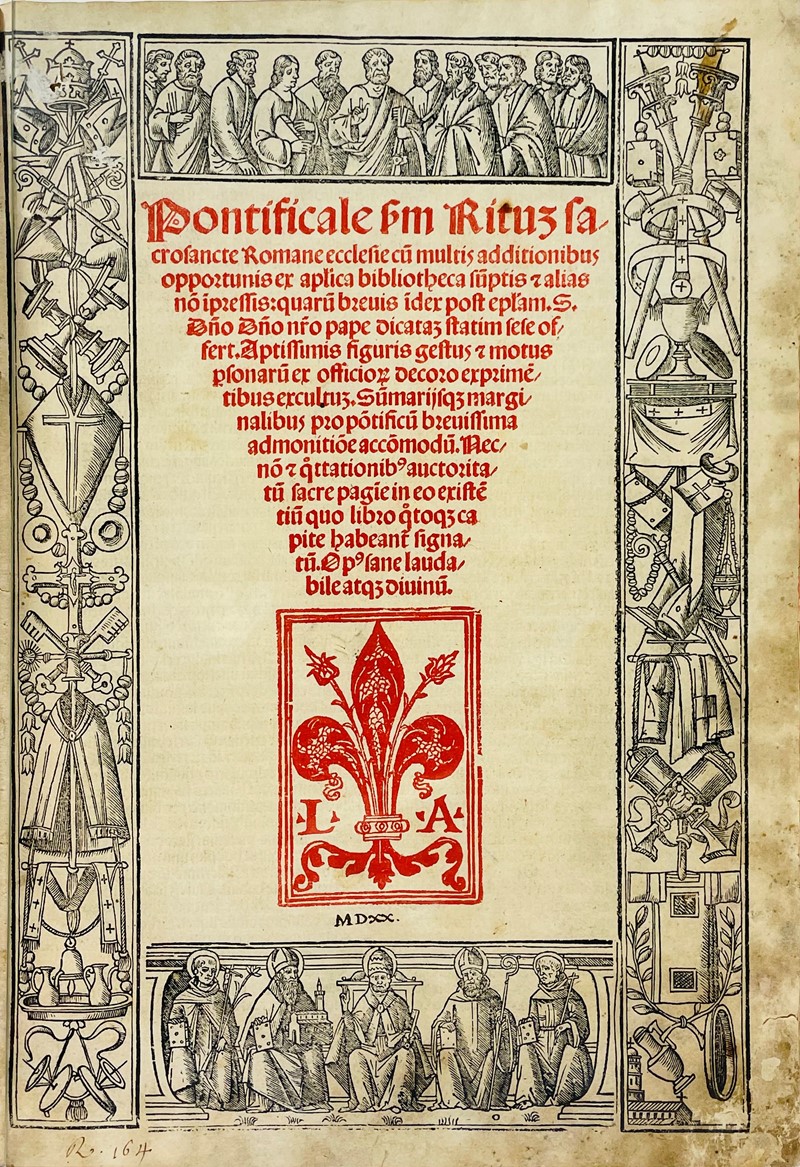 Pontificale ẜm Rituꝫ sa⸗
crosancte Romane ecclesie cū multis additionibus
opportunis ex aplica bibliotheca sūptis ⁊ alias
nō īpressis:quarū breuis īdex post epłam.S.
Dño Dño nr̄o pape dicataꝫ statim sese of⸗
fert.Aptissimis figuris gestus ⁊ motus
ꝑsonarū ex officioꝝ decoro exprimē⸗
tibus excultuꝫ.Sūmarijsqꝫ margi⸗
nalibus pro pōtificū breuissima
admonitiōe accōmodū.Nec⸗
nō ⁊ q̊ttationibꝰ auctorita⸗
tū sacre pagīe in eo existē
tiū quo libro q̊toqꝫ ca
pite habeant᷑ signa⸗
tū.Opꝰ sane lauda⸗
bile atqꝫ diuinū.
L A
MDXX.
R. 164